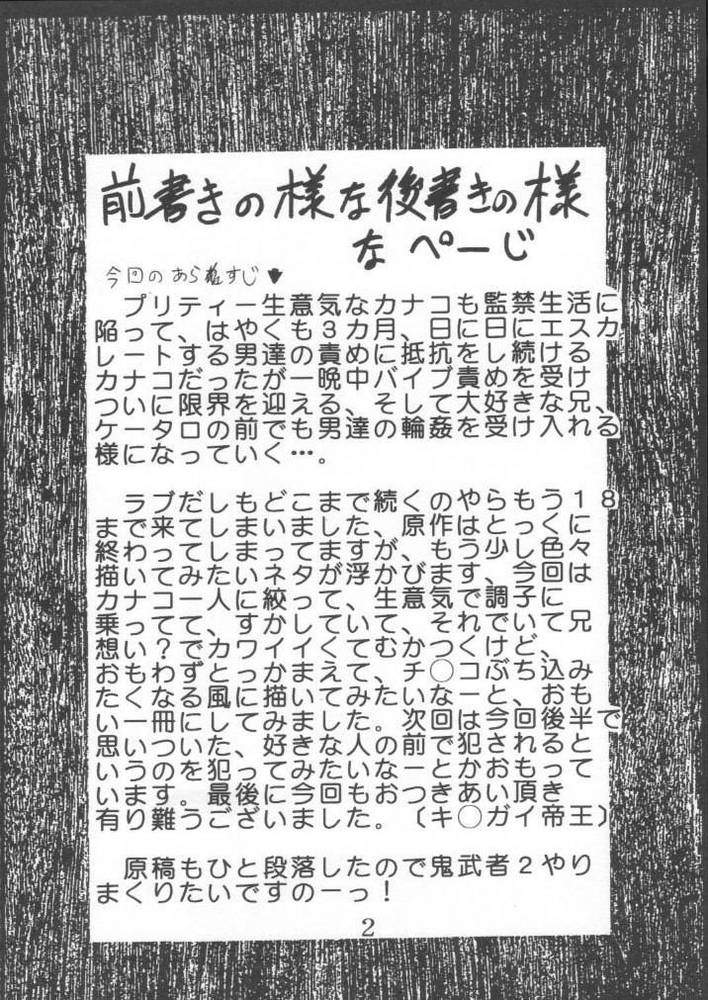 前書きの様な後書きの様
なページ
今回のあらすじ
プリティー生意気なカナコも監禁生活に
陥って、はやくも3カ月、日に日にエスカ
レートする男達の責めに抵抗をし続ける
カナコだったが一晩中バイブ責めを受け
ついに限界を迎える、そして大好きな兄、
ケータロの前でも男達の輪姦を受け入れる
様になっていく…。
ラブだしもどこまで続くのやらもう18
まで来てしまいました、原作はとっくに
終わってしまってますが、もう少し色々
描いてみたいネタが浮かびます、今回は
カナコ一人に絞って、生意気で調子に
乗ってて、すかしていて、それでいて兄
想い?でカワイイくてむかつくけど、
おもわずとっかまえて、チ○コぶち込み
たくなる風に描いてみたいなーと、おも
い一冊にしてみました。次回は今回後半で
思いついた、好きな人の前で犯されると
いうのを犯ってみたいなーとかおもって
います。最後に今回もおつきあい頂き
有り難うございました。(キ○ガイ帝王)
原稿もひと段落したので鬼武者2やり
まくりたいですのーっ!
2